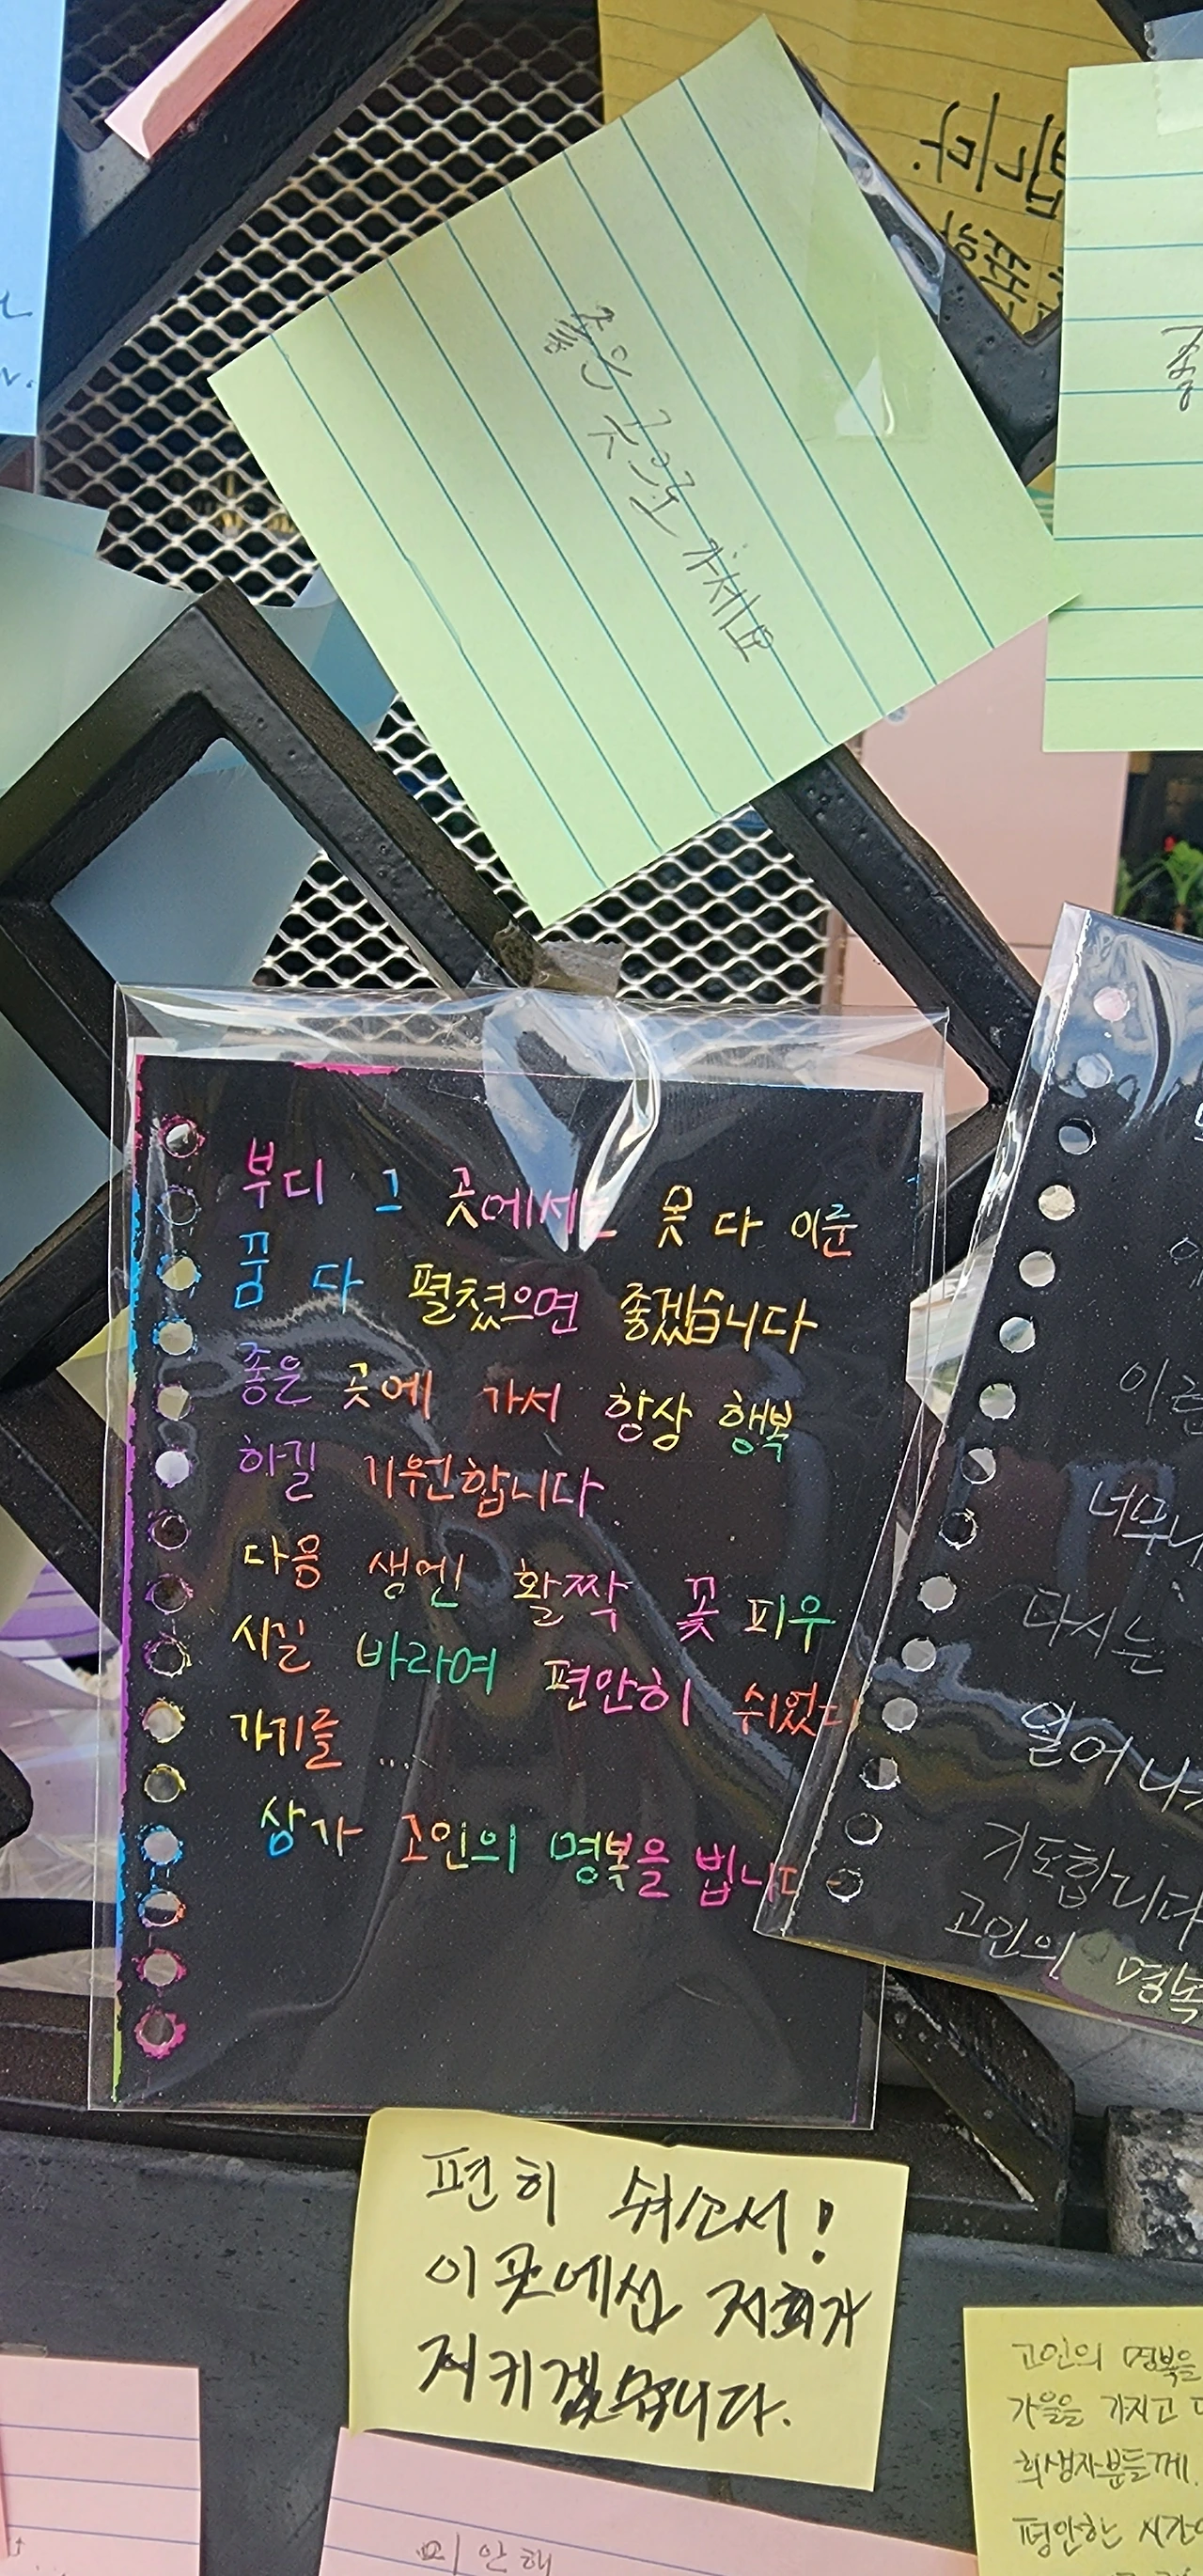 좋은 곳으로 가세요
부디 그 곳에서 못 다 이룬
꿈 다 펼쳤으면 좋겠습니다
좋은 곳에 가서 항상 행복
하길 기원합니다
다음 생엔 활짝 꽃 피우
시길 바라며 편안히 쉬었다
가기를 ...
삼가 고인의 명복을 빕니다
너무나
다시는
기도합니다
고인의 명복
편히 쉬소서!
이곳에선 저희가
지키겠습니다.
고인의 명복을
가을을 가지고
희생자분들께
평안한 시간
미안해